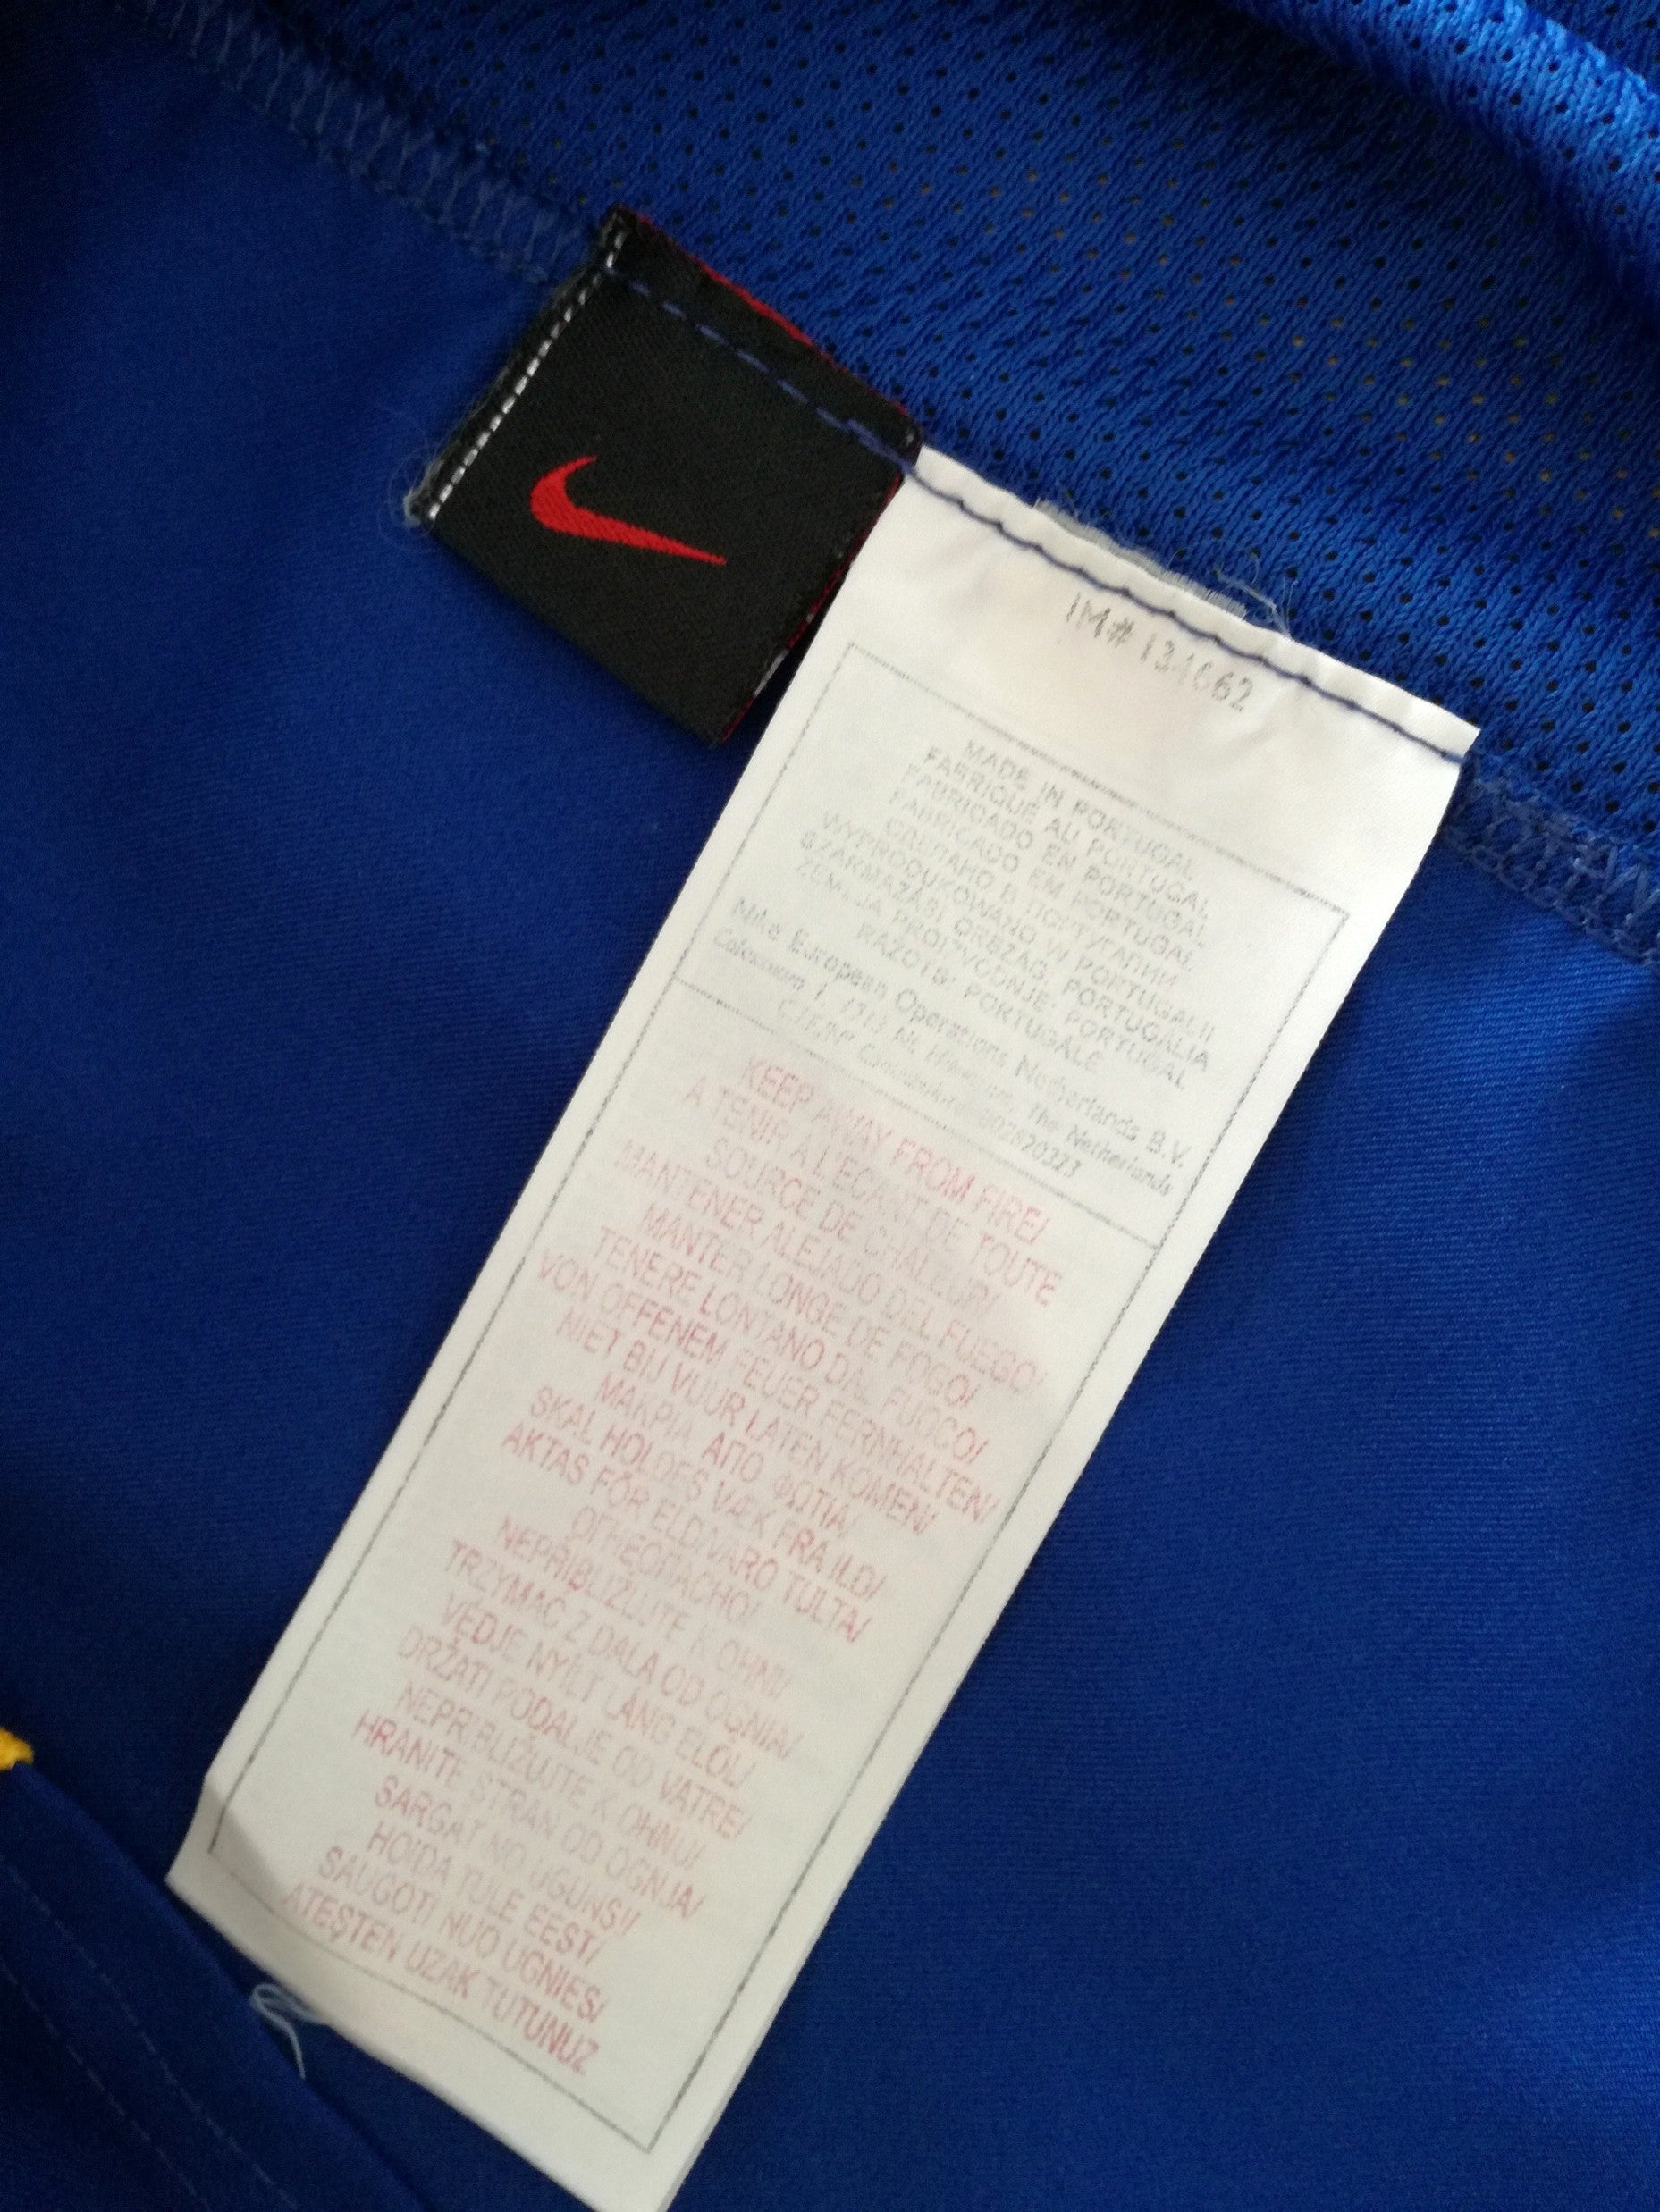 IM#
MADE IN PORTUGAL
FABRIQUÉ AU PORTUGAL
FABRICADO EN PORTUGAL
FABRICADO EM PORTUGAL
СДЕЛАНО В ПОРТУГАЛИИ
WYPRODUKOWANO W PORTUGALII
SZÁRMAZÁSI ORSZÁG: PORTUGÁLIA
PROIZVODNJE: PORTUGAL
RAŽOTS: PORTUGĀLE
Nike European Operations Netherlands B.V.
Colosseum 1, 1213 NL Hilversum, the Netherlands
KEEP AWAY FROM FIRE/
A TENIR A L'ECART DE TOUTE
SOURCE DE CHALEUR/
MANTENER ALEJADO DEL FUEGO/
MANTER LONGE DE FOGO/
TENERE LONTANO DAL FUOCO/
VON OFFENEM FEUER FERNHALTEN/
NIET BIJ VUUR LATEN KOMEN/
ΜΑΚΡΙΑ ΑΠΟ ΦΩΤΙΑ/
SKAL HOLDES VÆK FRA ILD/
AKTAS FÖR ELD/VARO TULTA/
ОГНЕОПАСНО/
NEPŘIBLIŽUJTE K OHNI/
TRZYMAĆ Z DALA OD OGNIA/
VÉDJE NYÍLT LÁNG ELŐL/
DRŽATI PODALJE OD VATRE/
NEPRIBLIŽUJTE K OHŇU/
HRANITE STRAN OD OGNJA/
SARGĀT NO UGUNS/
HOIDA TULE EEST/
SAUGOTI NUO UGNIES/
ATEŞTEN UZAK TUTUNUZ